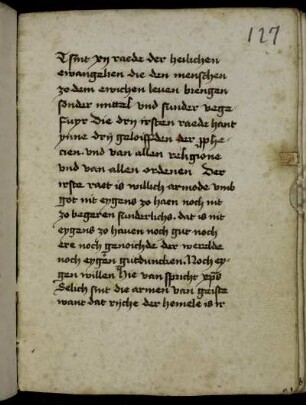 127
T sint xij raede der heilichen
ewangelien die den menschen
zo dem ewichen leven brengen
sonder mittel vnd sunder vege
fuyr Die drij irsten raede hant
ynne drij geloiffden der
cien. vnd van allen religione
vnd van allen ordenen Der
irste raet is willich armode vmb
got nit eygens zo haen noch nit
zo begeren sunderlichs. dat is nit
eygens zo hauen noch gut noch
ere noch genoichde der werelde
noch eygen gutduncken. Noch ey
gen willen Hie van spricht xp̄s
Selich sint die armen van geiste
want dat rijche der hemele is ir